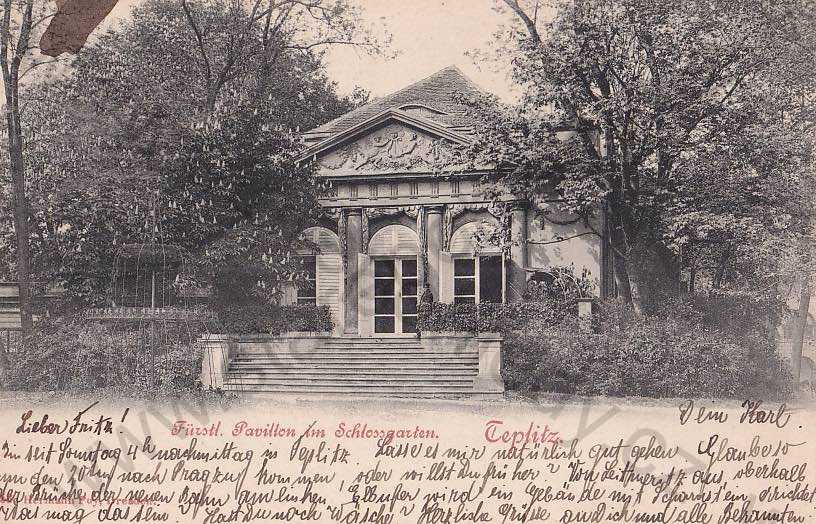 Lieber Fritz!
Fürstl. Pavillon im Schlossgarten.
Teplitz.
Dein Karl.
Bin seit Sonntag 4h nachmittag in Teplitz. Lasse es mir natürlich gut gehen. Glaube so
um den 20ten nach Prag zu kommen, oder willst Du früher? Von Leitmeritz aus, oberhalb
der Brücke der neuen Bahn am linken Elbufer wird ein Gebäude mit Schornstein errichtet
Was mag das sein? Hast Du noch Wäsche? Herzliche Grüsse an dich und alle Bekannten.